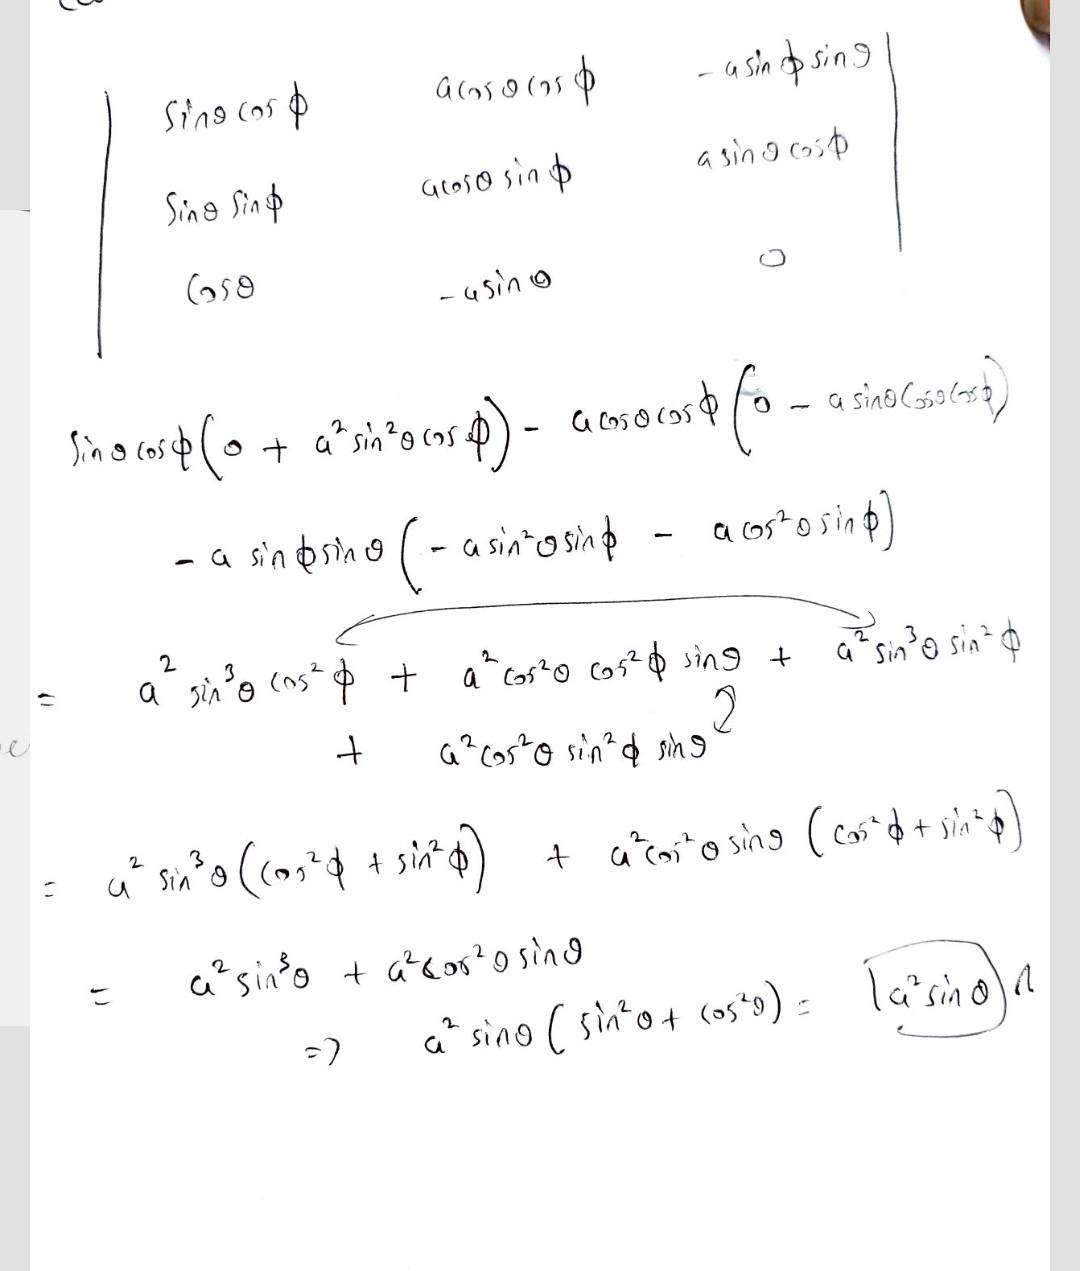 | sinθ cos ϕ   a cosθ cos ϕ   - a sin ϕ sin θ |
| sinθ sin ϕ   a cosθ sin ϕ   a sin θ cos ϕ |
| cosθ   - a sin θ   0 |
sin θ cos ϕ (0 + a² sin²θ cos ϕ) - a cosθ cos ϕ (0 - a sinθ cosθ cosϕ)
- a sin ϕ sin θ (- a sin²θ sin ϕ - a cos²θ sin ϕ)
= a² sin³θ cos² ϕ + a² cos²θ cos² ϕ sin θ + a² sin³θ sin² ϕ
+ a² cos²θ sin² ϕ sin θ
= a² sin³θ (cos² ϕ + sin² ϕ) + a² cos²θ sin θ (cos² ϕ + sin² ϕ)
= a² sin³θ + a² cos²θ sin θ
=> a² sinθ (sin²θ + cos²θ) = a² sin θ